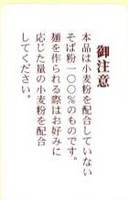 御注意
本品は小麦粉を配合していない
そば粉一〇〇％のものです。
麺を作られる際はお好みに
応じた量の小麦粉を配合
してください。